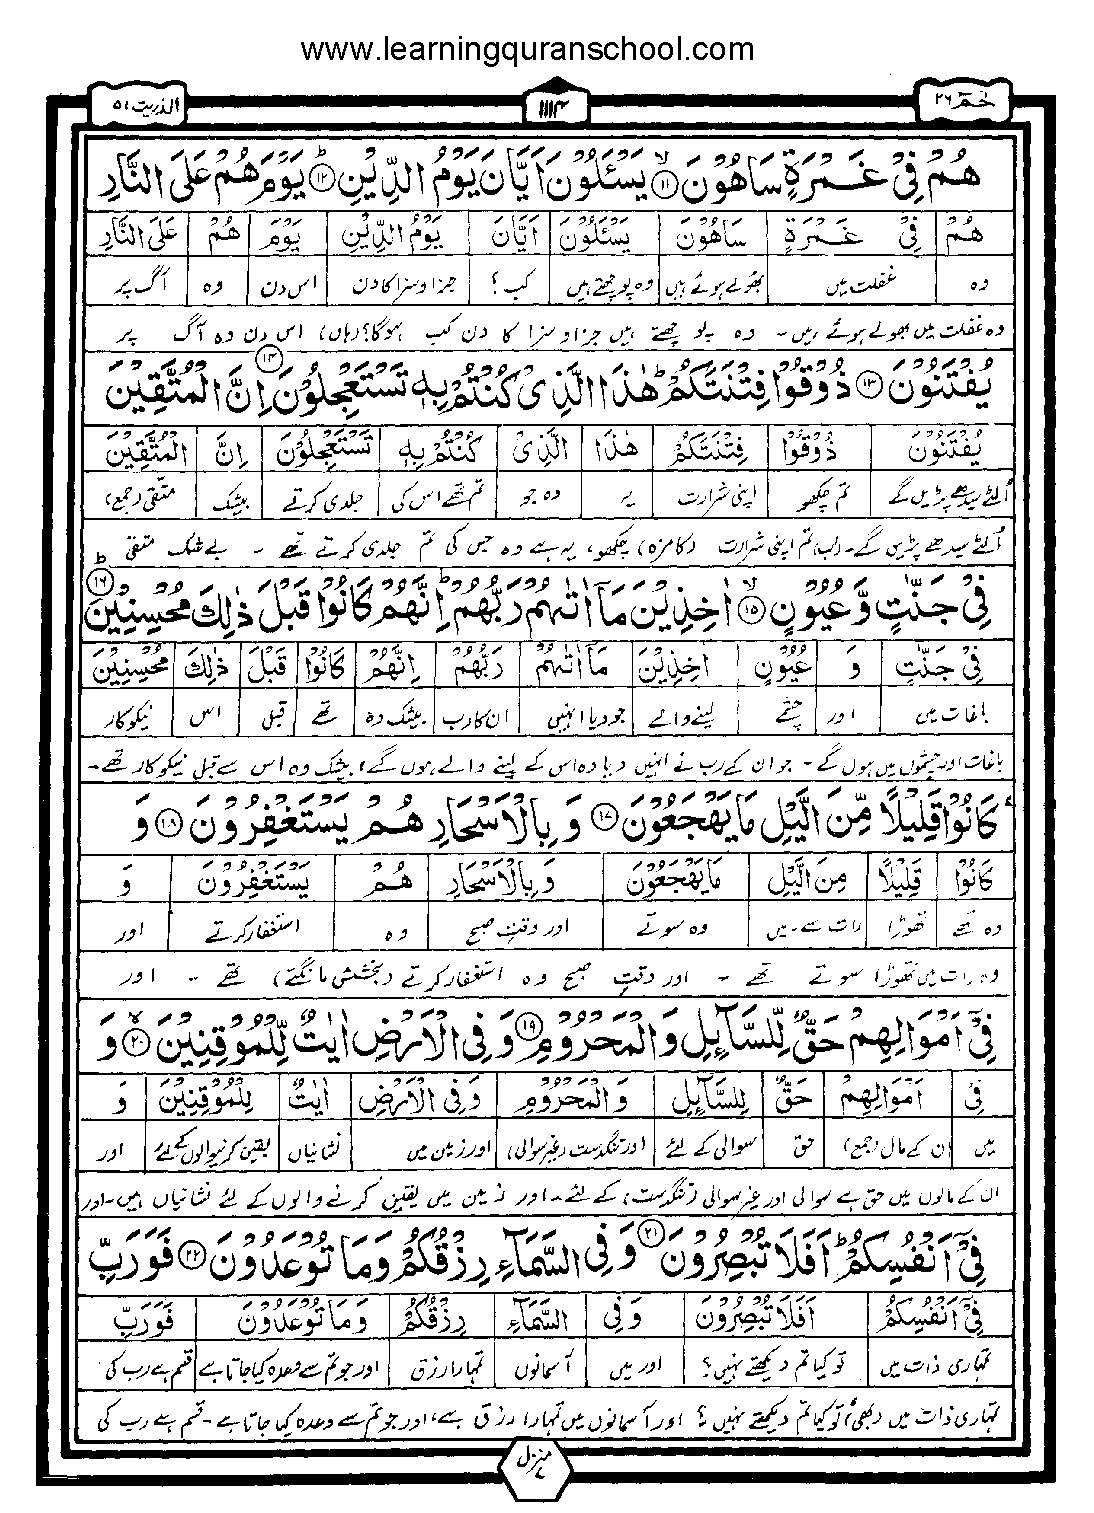 www.learningquranschool.com
الذریت ۵۱ ۱۱۱۴ حٰمٓ ۲۶
هُمْ فِیْ غَمْرَةٍ سَاهُوْنَ ۙ۝۱۱ یَسْـَٔلُوْنَ اَیَّانَ یَوْمُ الدِّیْنِ ؕ۝۱۲ یَوْمَ هُمْ عَلَی النَّارِ
هُمْ فِیْ غَمْرَةٍ سَاهُوْنَ یَسْـَٔلُوْنَ اَیَّانَ یَوْمُ الدِّیْنِ یَوْمَ هُمْ عَلَی النَّارِ
وہ غفلت میں بھولے ہوئے ہیں وہ پوچھتے ہیں کب؟ جزا و سزا کا دن اس دن وہ آگ پر
وہ غفلت میں بھولے ہوئے ہیں۔ وہ پوچھتے ہیں جزا و سزا کا دن کب ہوگا؟ (ہاں) اس دن وہ آگ پر
یُفْتَنُوْنَ ۝۱۳ ذُوْقُوْا فِتْنَتَكُمْ ؕ هٰذَا الَّذِیْ كُنْتُمْ بِهٖ تَسْتَعْجِلُوْنَ ۝۱۴ اِنَّ الْمُتَّقِیْنَ
یُفْتَنُوْنَ ذُوْقُوْا فِتْنَتَكُمْ هٰذَا الَّذِیْ كُنْتُمْ بِهٖ تَسْتَعْجِلُوْنَ اِنَّ الْمُتَّقِیْنَ
اُلٹے سیدھے پڑیں گے تم چکھو اپنی شرارت یہ وہ جو تم تھے اس کی جلدی کرتے بیشک متقی (جمع)
اُلٹے سیدھے پڑیں گے۔ (اب) تم اپنی شرارت (کا مزہ) چکھو، یہ ہے وہ جس کی تم جلدی کرتے تھے ۔ بے شک متقی
فِیْ جَنّٰتٍ وَّ عُیُوْنٍ ۙ۝۱۵ اٰخِذِیْنَ مَاۤ اٰتٰىهُمْ رَبُّهُمْ ؕ اِنَّهُمْ كَانُوْا قَبْلَ ذٰلِكَ مُحْسِنِیْنَ ؕ۝۱۶
فِیْ جَنّٰتٍ وَ عُیُوْنٍ اٰخِذِیْنَ مَاۤ اٰتٰىهُمْ رَبُّهُمْ اِنَّهُمْ كَانُوْا قَبْلَ ذٰلِكَ مُحْسِنِیْنَ
باغات میں اور چشمے لینے والے جو دیا انہیں ان کا رب بیشک وہ تھے قبل اس نیکوکار
باغات اور چشموں میں ہوں گے۔ جو ان کے رب نے انہیں دیا وہ اس کے لینے والے ہوں گے، بیشک وہ اس سے قبل نیکوکار تھے۔
كَانُوْا قَلِیْلًا مِّنَ الَّیْلِ مَا یَهْجَعُوْنَ ۝۱۷ وَ بِالْاَسْحَارِ هُمْ یَسْتَغْفِرُوْنَ ۝۱۸ وَ
كَانُوْا قَلِیْلًا مِنَ الَّیْلِ مَا یَهْجَعُوْنَ وَ بِالْاَسْحَارِ هُمْ یَسْتَغْفِرُوْنَ وَ
وہ تھے تھوڑا رات سے۔ میں وہ سوتے اور وقتِ صبح وہ استغفار کرتے اور
وہ رات میں تھوڑا سوتے تھے ۔ اور وقتِ صبح وہ استغفار کرتے (بخشش مانگتے) تھے ۔ اور
فِیْۤ اَمْوَالِهِمْ حَقٌّ لِّلسَّآىِٕلِ وَ الْمَحْرُوْمِ ۝۱۹ وَ فِی الْاَرْضِ اٰیٰتٌ لِّلْمُوْقِنِیْنَ ۙ۝۲۰ وَ
فِیْۤ اَمْوَالِهِمْ حَقٌّ لِلسَّآىِٕلِ وَ الْمَحْرُوْمِ وَ فِی الْاَرْضِ اٰیٰتٌ لِلْمُوْقِنِیْنَ وَ
میں ان کے مال (جمع) حق سوالی کے لئے اور تنگدست (غیر سوالی) اور زمین میں نشانیاں یقین کرنیوالوں کے لئے اور
ان کے مالوں میں حق ہے سوالی اور غیر سوالی (تنگدست) کے لئے۔ اور زمین میں یقین کرنے والوں کے لئے نشانیاں ہیں۔ اور
فِیْۤ اَنْفُسِكُمْ ؕ اَفَلَا تُبْصِرُوْنَ ۝۲۱ وَ فِی السَّمَآءِ رِزْقُكُمْ وَ مَا تُوْعَدُوْنَ ۝۲۲ فَوَرَبِّ
فِیْۤ اَنْفُسِكُمْ اَفَلَا تُبْصِرُوْنَ وَ فِی السَّمَآءِ رِزْقُكُمْ وَ مَا تُوْعَدُوْنَ فَوَرَبِّ
تمہاری ذات میں تو کیا تم دیکھتے نہیں؟ اور میں آسمانوں تمہارا رزق اور جو تم سے وعدہ کیا جاتا ہے قسم ہے رب کی
تمہاری ذات میں (بھی) تو کیا تم دیکھتے نہیں؟ اور آسمانوں میں تمہارا رزق ہے، اور جو تم سے وعدہ کیا جاتا ہے۔ قسم ہے رب کی
منزل ۷